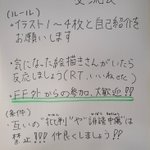 (ルール)
・イラスト1〜4枚と自己紹介を
お願いします
・気になった絵描きさんがいたら
反応しましょう(RT、いいねetc)
・FF外からの参加、大歓迎!!
(条件)
・互いの"批判"や"誹謗中傷"は
禁止!!!仲良くしましょう!!